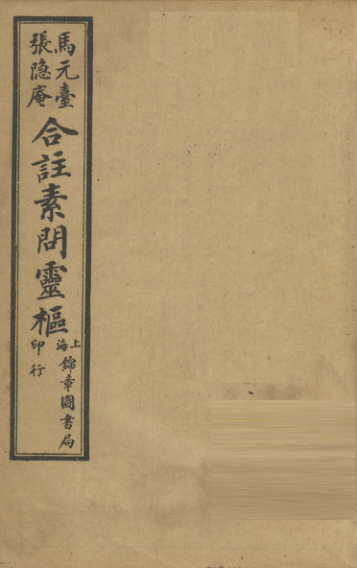 馬元臺
張隐庵
合註素問靈樞
上海錦章圖書局
印行